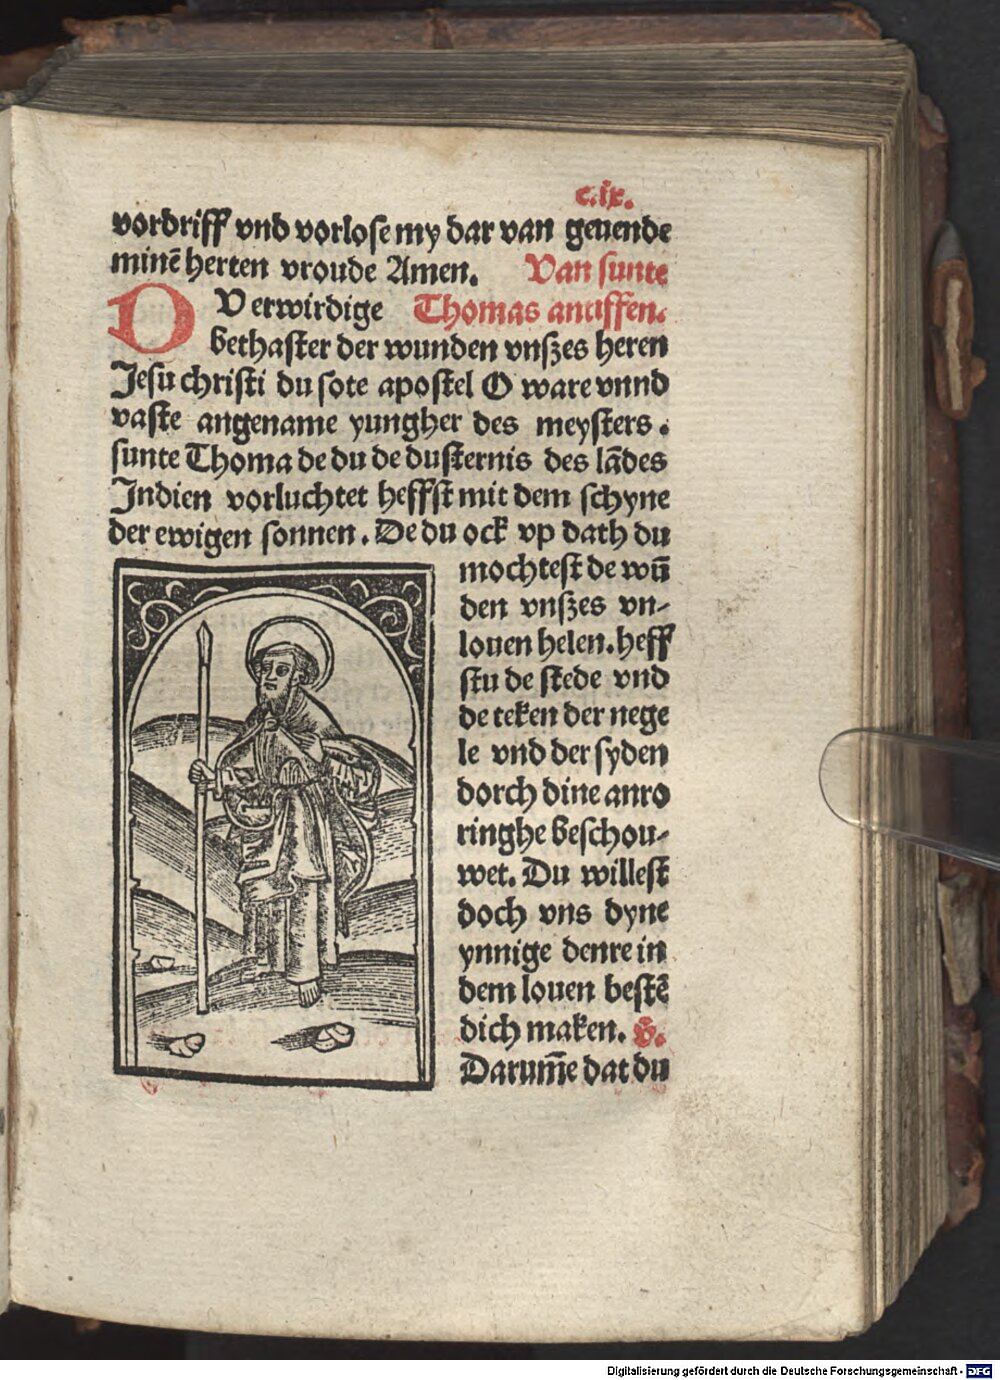 c.ix.
vordriff vnd vorlose my dar van geuende
minē herten vroude Amen. Van sunte
O Verwirdige Thomas antiffen.
bethaster der wunden vnszes heren
Jesu christi du sote apostel O ware vnnd
vaste angename yungher des meysters.
sunte Thoma de du de dusternis des lādes
Indien vorluchtet heffst mit dem schyne
der ewigen sonnen. De du ock vp dath du
mochtest de wū
den vnszes vn-
louen helen. heff
stu de stede vnd
de teken der nege
le vnd der syden
dorch dine anro
ringhe beschou-
wet. Du willest
doch vns dyne
ynnige denre in
dem louen bestē
dich maken.
Darum̄e dat du
Digitalisierung gefördert durch die Deutsche Forschungsgemeinschaft - DFG